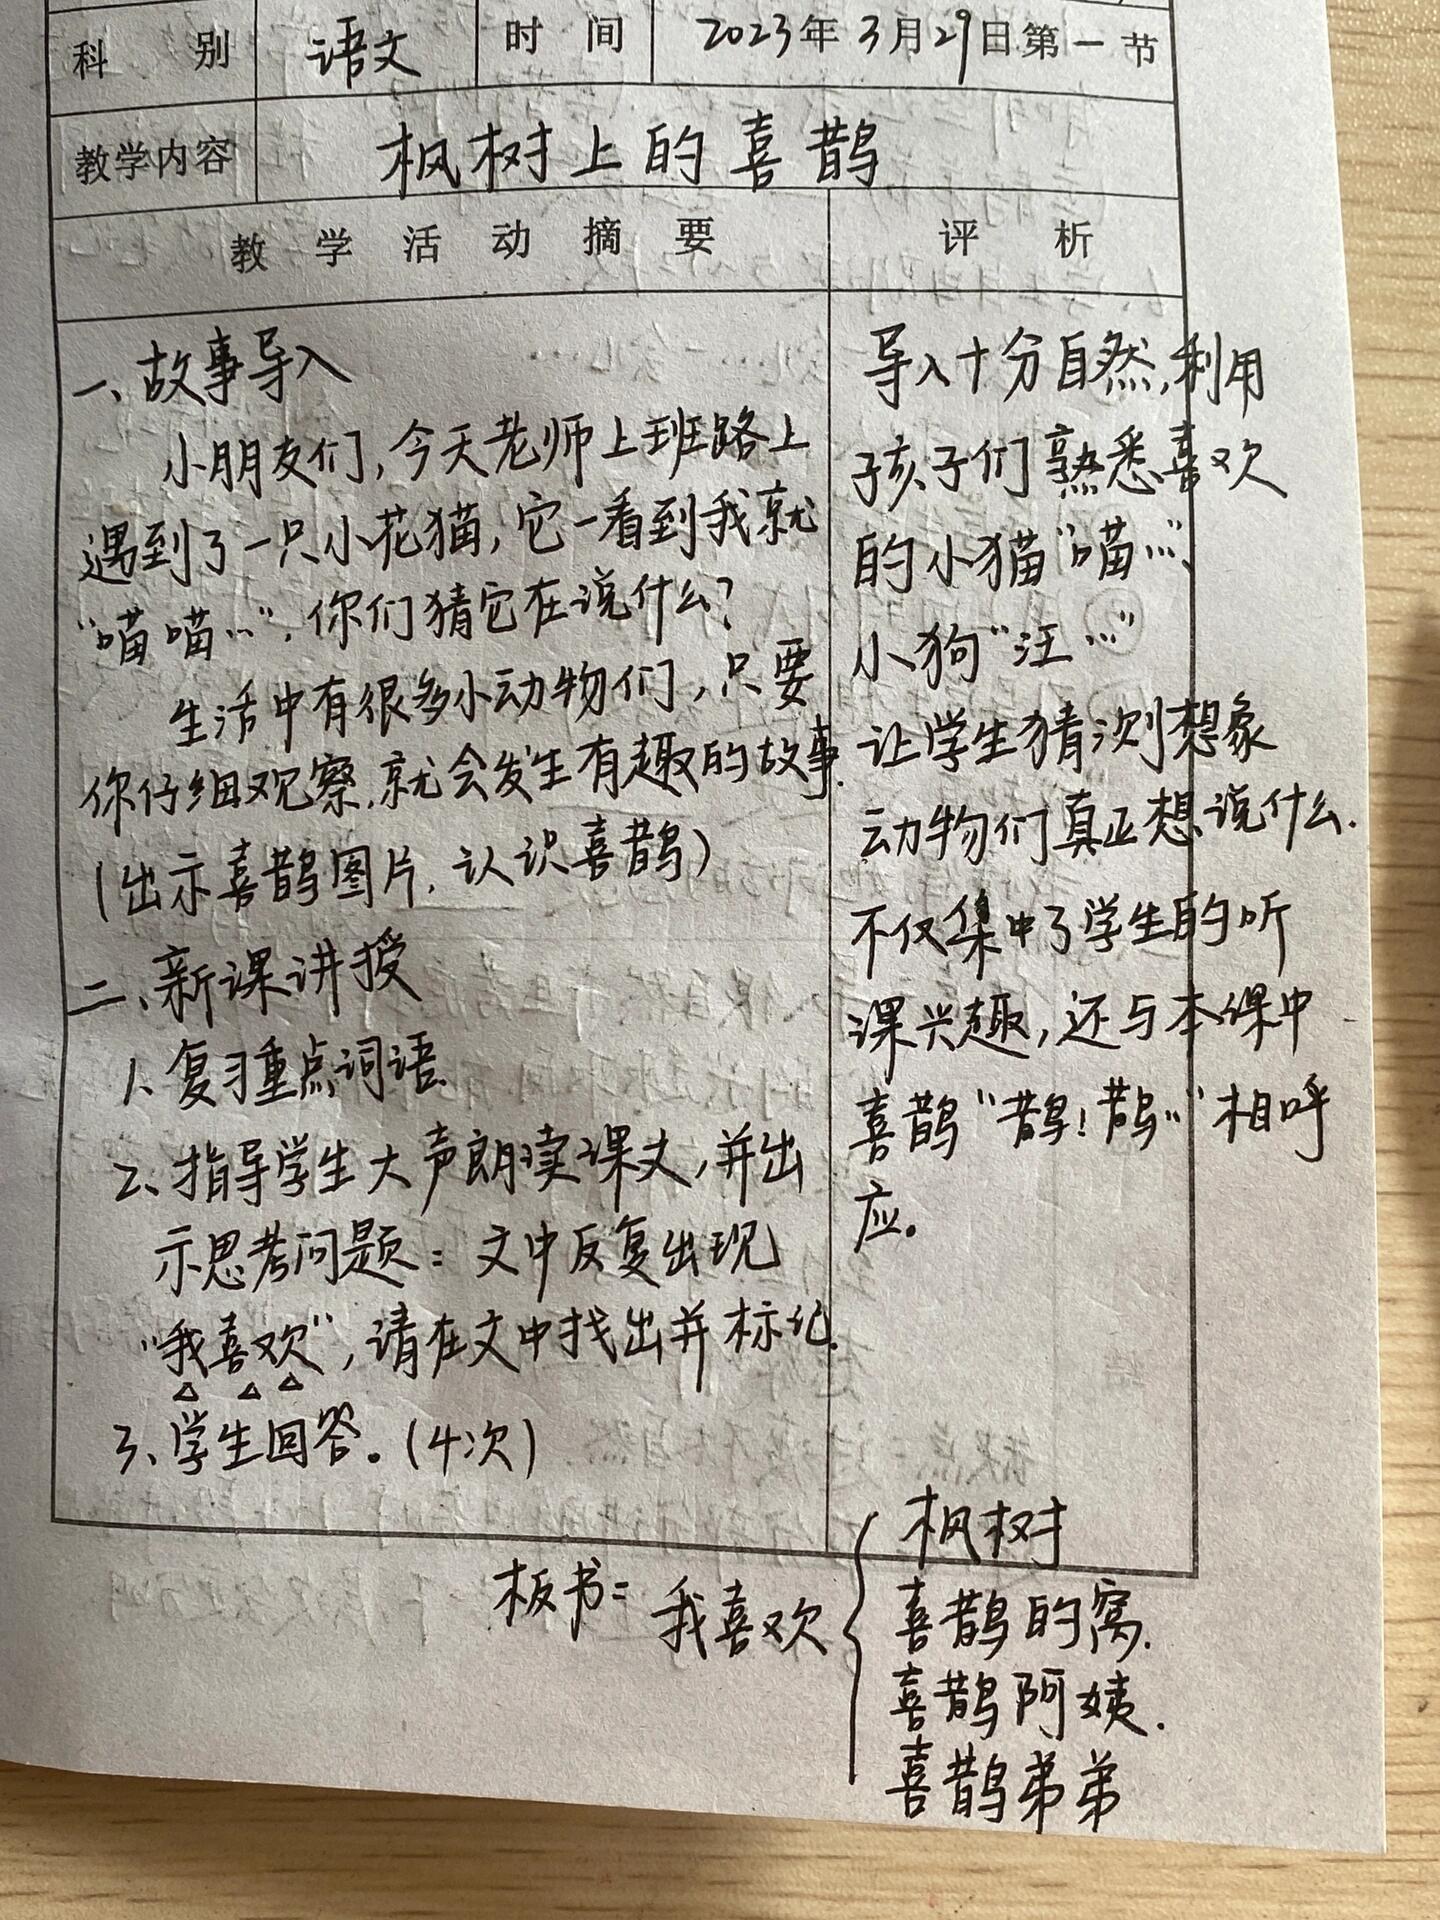 科 别 语文 时 间 2023年3月29日第一节
教学内容 枫树上的喜鹊
教 学 活 动 摘 要
评 析
一、故事导入
小朋友们,今天老师上班路上
遇到了一只小花猫,它一看到我就
“喵喵…”,你们猜它在说什么?
生活中有很多小动物们,只要
你仔细观察,就会发生有趣的故事.
(出示喜鹊图片,认识喜鹊)
二、新课讲授
1、复习重点词语.
2、指导学生大声朗读课文,并出
示思考问题:文中反复出现
“我喜欢”,请在文中找出并标记.
△ △ △
3、学生回答。(4次)
导入十分自然,利用
孩子们熟悉喜欢
的小猫“喵…”、
小狗“汪…”
让学生猜测想象
动物们真正想说什么.
不仅集中了学生的听
课兴趣,还与本课中
喜鹊“鹊!鹊…”相呼
应。
板书: 我喜欢
枫树
喜鹊的窝.
喜鹊阿姨.
喜鹊弟弟